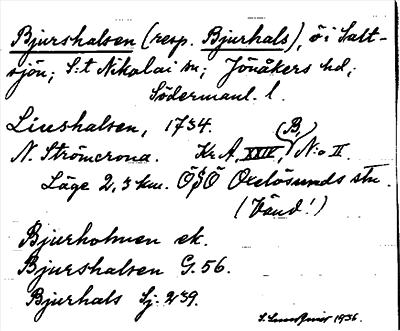 Bjurshalsen (resp. Bjurhals), ö i Salt-
sjön; S:t Nikolai sn; Jönåkers hd;
Södermanl. l.
Liushalsen, 1734.
N. Strömcrona. Kr A, XXIV, B, N:o II.
Läge 2,3 km. ÖSÖ Oxelösunds stn.
(Vänd!)
Bjurholmen ek.
Bjurshalsen G. 56.
Bjurhals Sj. 239.
1936.